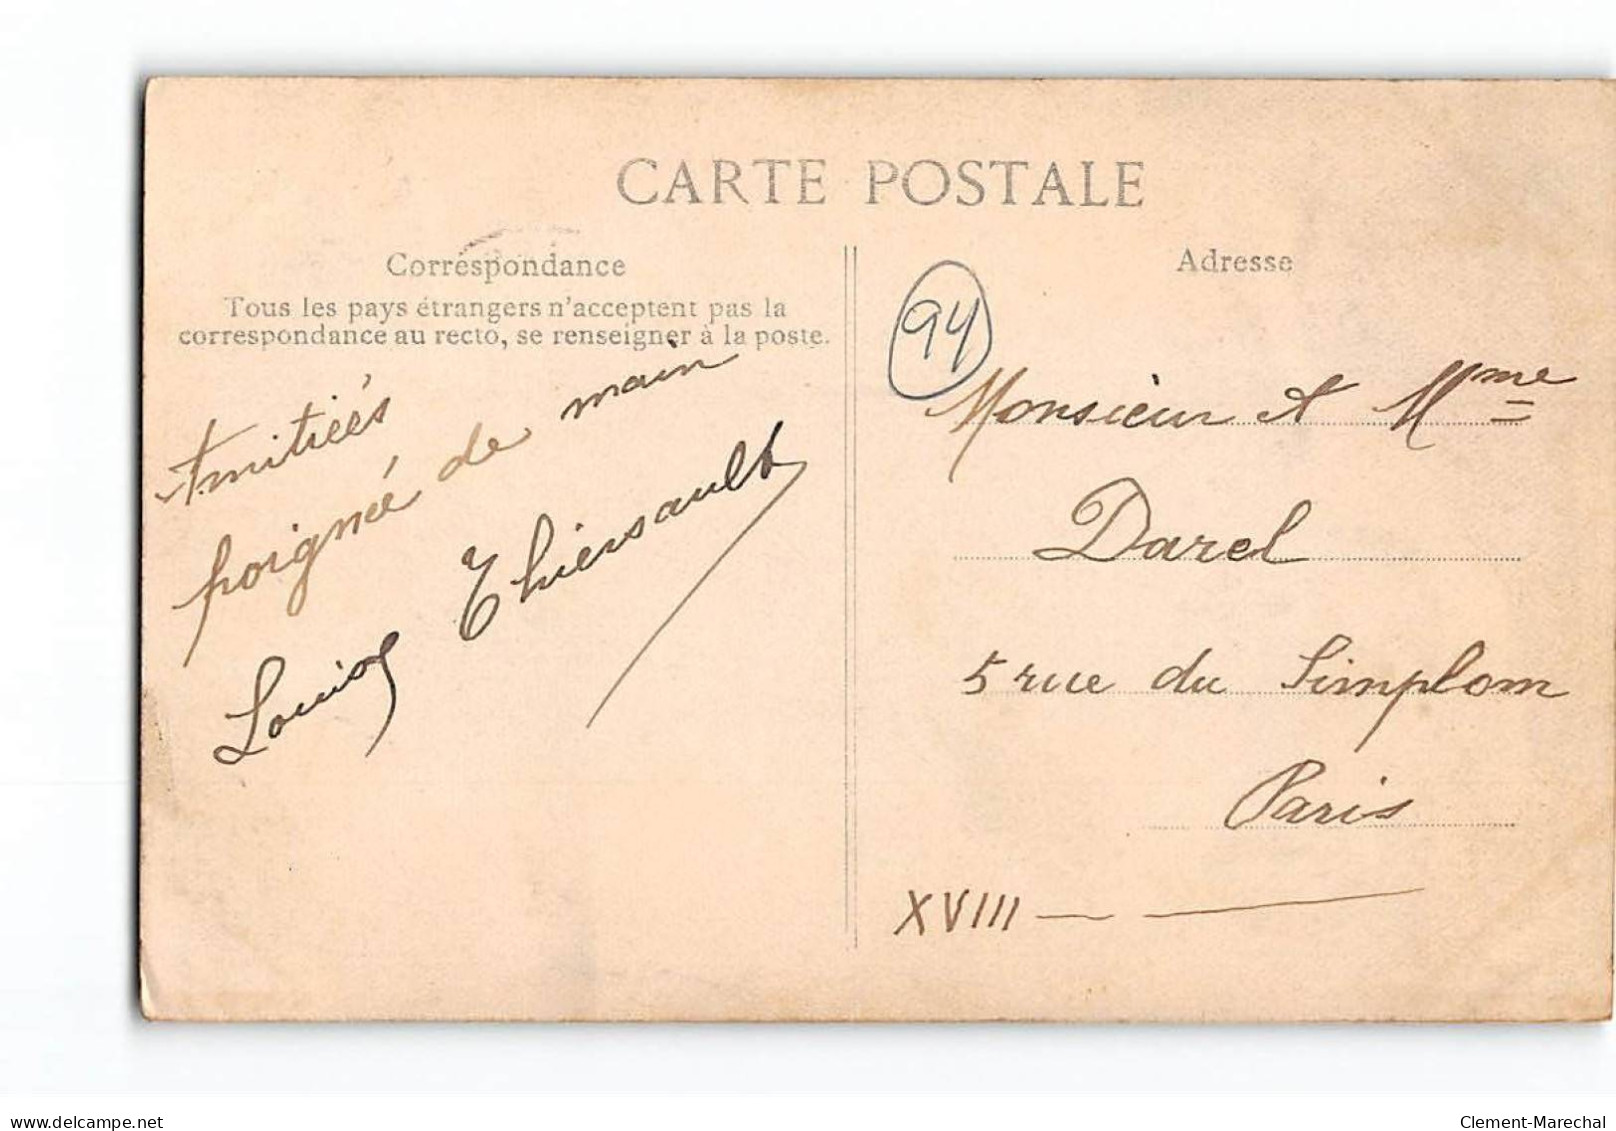 CARTE POSTALE
Correspondance
Tous les pays étrangers n'acceptent pas la
correspondance au recto, se renseigner à la poste.
Amitiés
poignée de main
Louis Thiersault
Adresse
94
Monsieur et Mme
Darel
5 rue du Simplom
Paris
XVIII
delcampe.net
Clement-Marechal